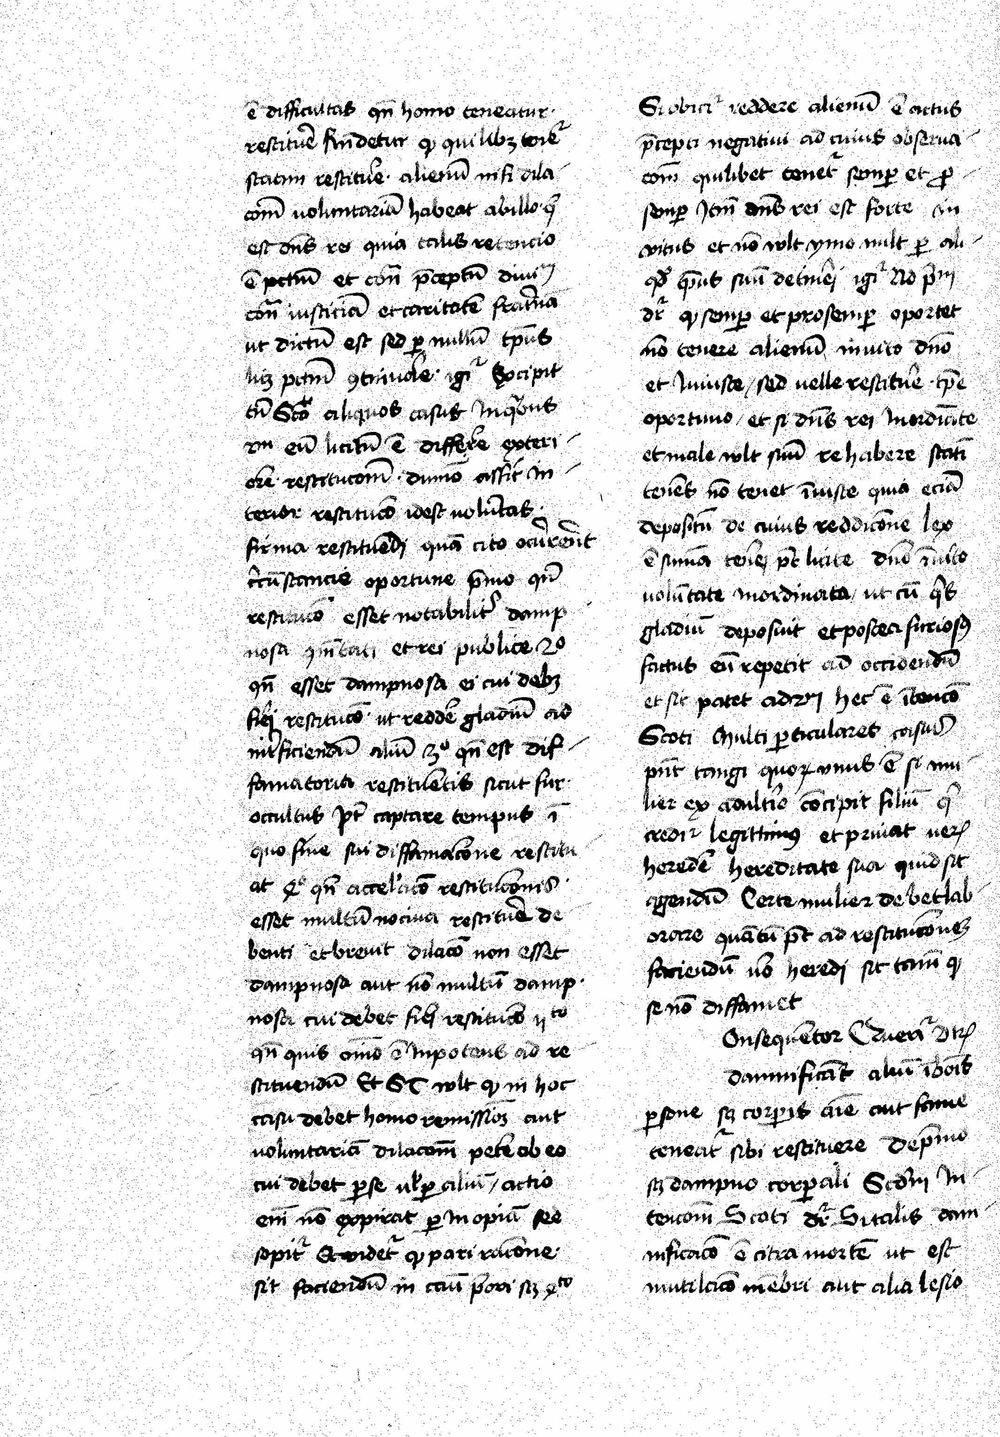 ē difficultas qn̄ homo teneatur
restituē͛ q̨ quilibꝫ tenet͛
statim restitue͛ alienū nisi dila
cōm voluntariā habeat ab illo q͛
est dn̄s rei quia talis retencio
ē pctm̄ et con͛ p̄ceptū divi
con͛ iusticiā et caritatē frat͛na
ut dictū est sed ꝑ nullū tp̄us
licꝫ pctm̄ ꝯtinuale igi͛ Excipit
tn̄ Sco͛ aliquos casus in qͥbus
eū licitū ē differ͛e exteri
ore͛ restitucōm dumō assit in
terior restitucō idest volūtas
firma restituēdi quā cito ocur͛erit
c͛cūstancie oportune p̄mo qn̄
restitucō esset notabilit͛ damp
nosa ꝯmūtati et rei publice 2o
qn̄ esset dampnosa ei cui debꝫ
fi͛ei restitucō ut redde͛ gladiū ad
int͛ficiendū aliū 3o qn̄ est dif
famatoria restituētis sicut fur
occultus pt̄ captare tempus ī
quo sine sui diffamacōne restitu
at 4o qn̄ accel͛acō restitucōnis
esset multū nociva restituē͛ de
benti et brevit dilacō non esset
dampnosa aut nō multū damp
nosa cui debet fie͛i restitucō vto
qn̄ quis om̄o ē inpotens ad re
stituendū Et SC wlt q̨ in hoc
casu debet homo remissiōꝫ aut
voluntariā dilacōm pete͛ ab eo
cui debet ꝑ se ul̄ ꝑ aliū / actio
em̄ nō expirat ꝑ inopiā sed
sopit͛ Et videt͛ q̨ pari racōne
sit faciendū in casu p̄ori sꝫ 4to
Si obici͛ reddere alienū ē actus
p̄cepti negativi ad cuius observa
cōm quilibet tenet͛ semꝑ et ꝓ
semꝑ Itm̄ dn̄s rei est forte in
vitus et nō wlt ymo nult ꝑ ali
qd̄ tp̄us suū detine͛i igi͛ Ad p̄m
dr͛ q̨ semꝑ et pro semper oportet
nō tenere alienū invito dn̄o
et iniuste / sed velle restitue͛ tp̄e
oportuno / et si dn̄s rei inordiāte
et male wlt suū rehabere statī
tenēs nō tenet īiuste quia eciā
depositū de cuius reddicōne lex
ē suma tene͛i pt̄ licite dn̄o īvito
volūtate inordinata / ut cū qͥs
gladiū deposuit et postea furiosꝯ
factus eū repetit ad occidendū
et sic patet ad 2m hec ē ītencō
Scoti Multi ꝑticulares casus
pn̄t tangi quoꝝ unus ē si mu
lier ex adult͛io cōcipit filiū q͛
credi͛ legittimꝯ et privat ver͛
heredē hereditate sua quid sit
agendū Certe mulier debet lab
orare quātū pt̄ ad restitucōneꝫ
faciendū v͛o heredi sic tam̄ q̨
se nō diffamet
Onsequēter Quera͛ Utr͛
damnificās aliū ī bōis
ꝑsone sꝫ corꝑis aīe aut fame
teneat͛ sibi restituere De p̄mo
sꝫ dampno corꝑali Scdm̄ in
tencōm Scoti dr͛ Si talis dam
nificacō ē citra mortē ut est
mutilacō mēbri aut alia lesio